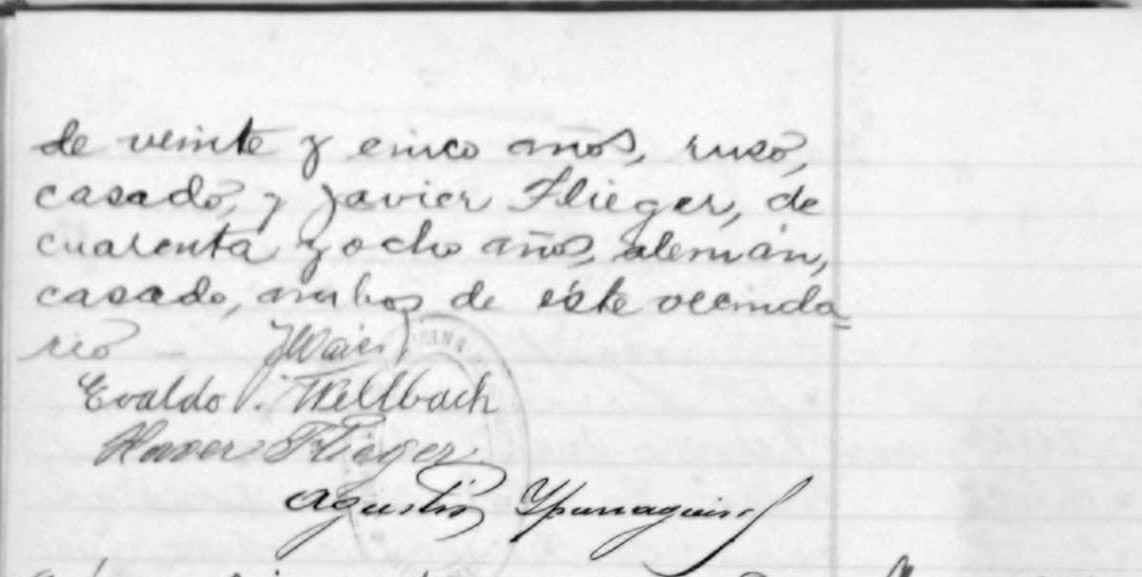 de veinte y cinco años, ruso,
casado, y Javier Flieger, de
cuarenta y ocho años, alemán,
casado, ambos de éste vecinda
rio —
Evaldo Wellbach
Flieger
Agustin